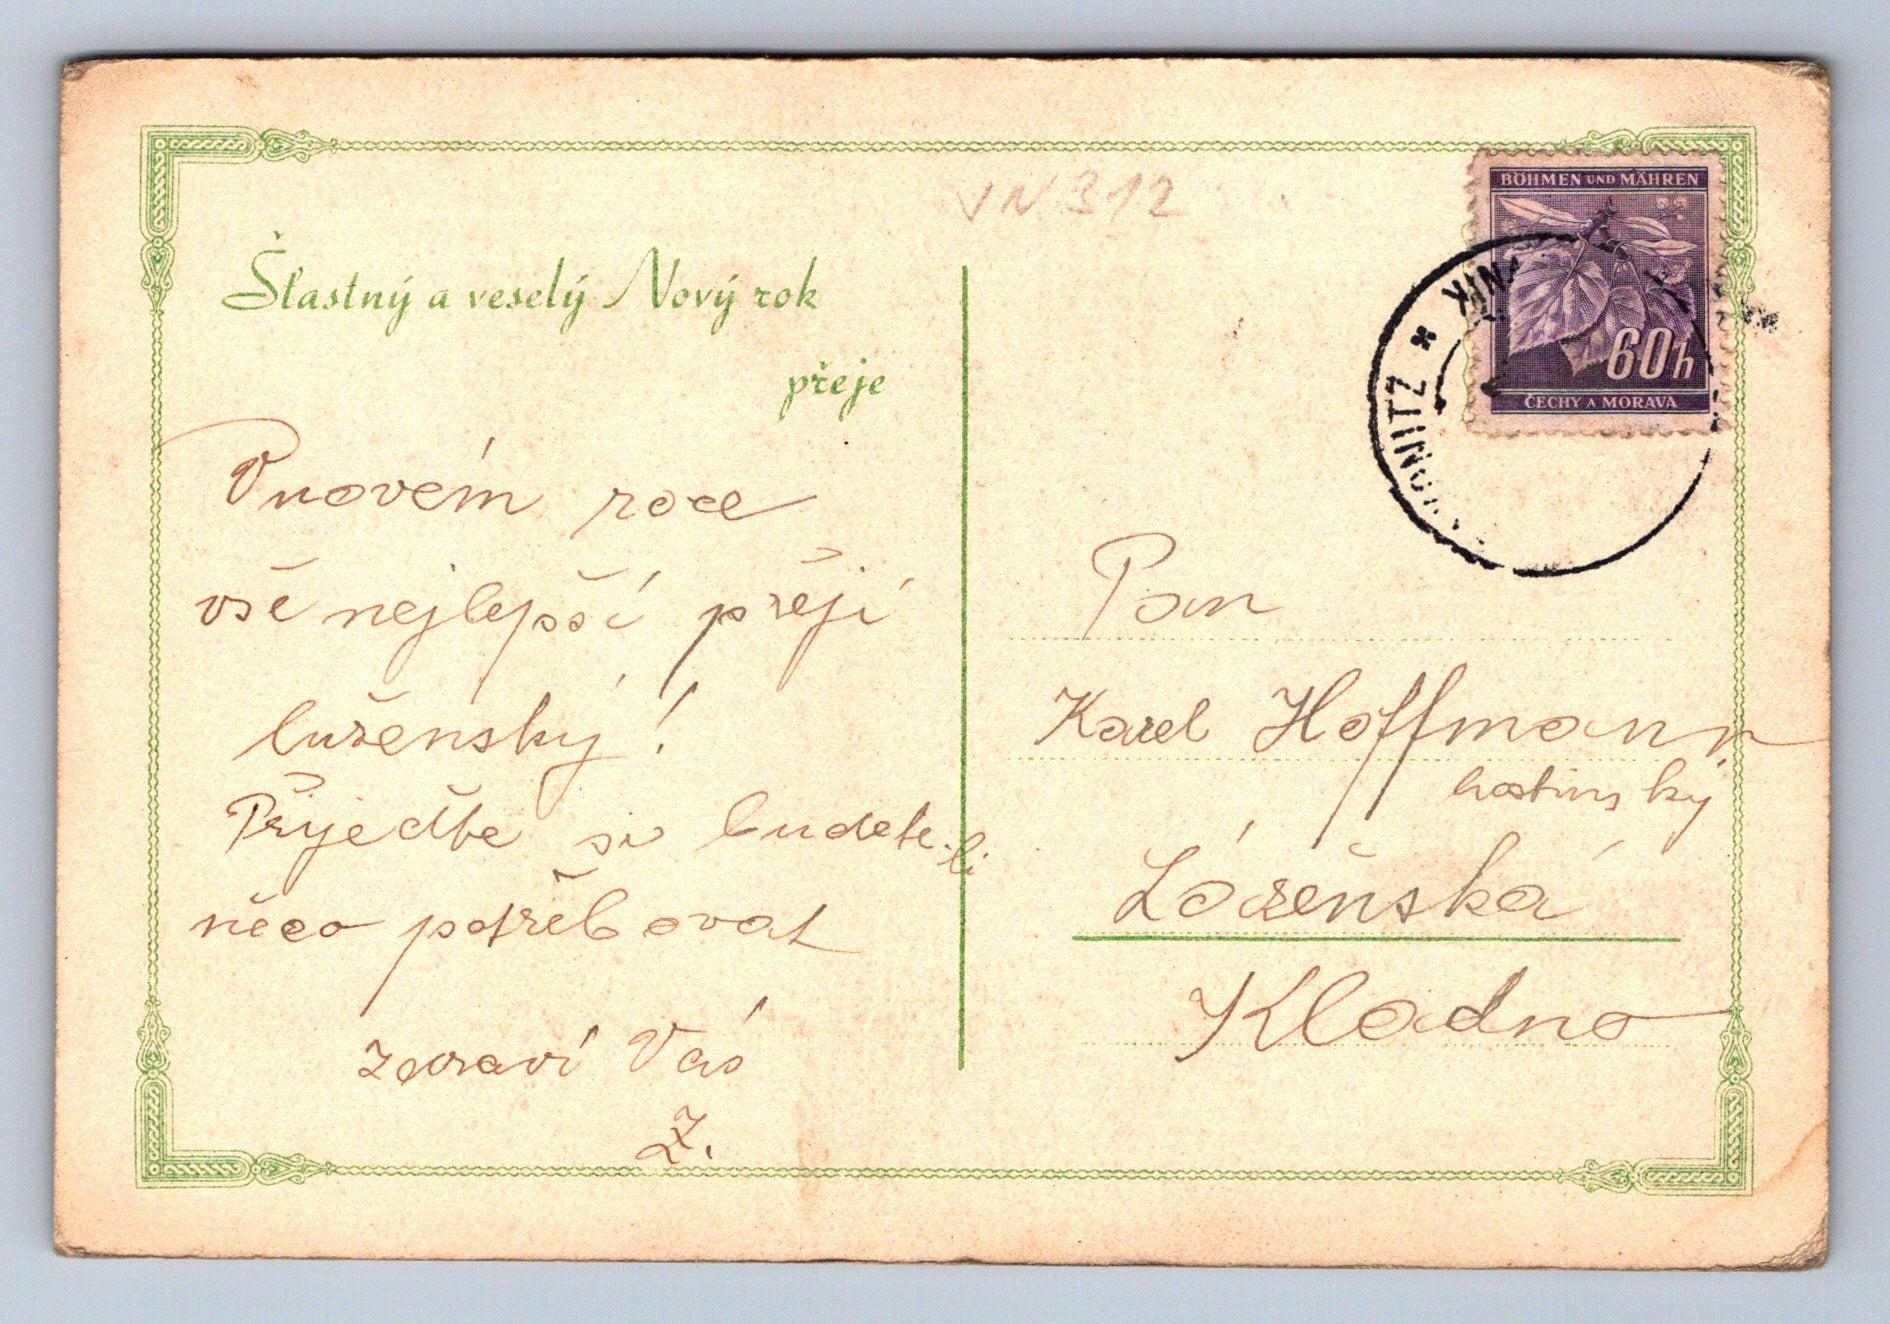 VN 312
BÖHMEN UND MÄHREN
60h
ČECHY A MORAVA
Šťastný a veselý Nový rok
přeje
V novém roce
vše nejlepší přejí
Luženský!
Přijeďte si budete-li
něco potřebovat
zdraví Vás
Ž.
Pan
Karel Hoffmann
hostinský
Lázeňská
Kladno